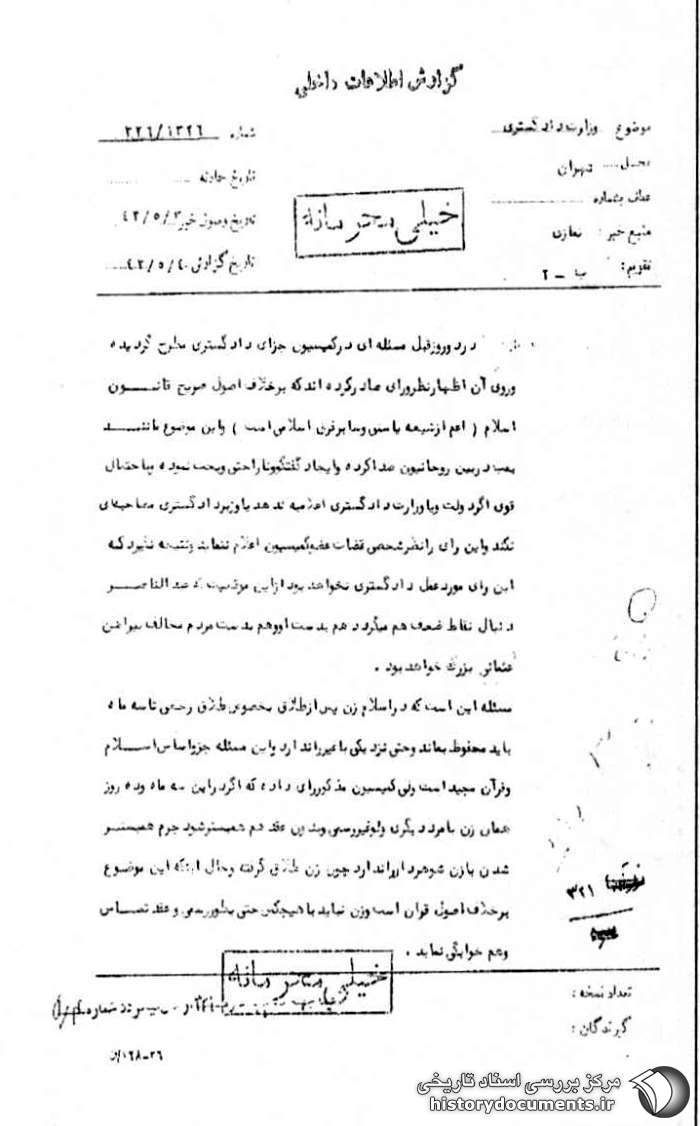 گزارش اطلاعات داخلی
موضوع وزارت دادگستری
شماره ۳۲۶/۱۳۲۶
محل تهران
تاریخ حادثه
عطف بشماره
تاریخ وصول خبر ۴۲/۵/۳
خیلی محرمانه
منبع خبر: نفاری
تاریخ گزارش ۴۲/۵/۴۰
تقویم: ب - ۲
در دو روز قبل مسئله ای در کمیسیون جزای دادگستری مطرح گردیده
و روی آن اظهار نظر و رای صادر کرده اند که برخلاف اصول صریح قانون
اسلام ( اعم از شیعه یا سنی و سایر فرق اسلامی است ) و این موضوع مانند
بمب در بین روحانیون صدا کرده و ایجاد گفتگو و ناراحتی و بحث نموده و باحتمال
قوی اگر دولت و یا وزارت دادگستری اعلامیه ندهد یا وزیر دادگستری مصاحبه‌ای
نکند و این رای را نظر شخص قضات عضو کمیسیون اعلام ننماید و نتیجه نگیرد که
این رای مورد عمل دادگستری نخواهد بود از این موقعیت که عبدالناصر
دنبال نقاط ضعف هم میگردد هم بدست او و هم بدست مردم مخالف پیراهن
عثمانی بزرگ خواهد بود .
مسئله این است که در اسلام زن پس از طلاق بخصوص طلاق رجعی تا سه ماه
باید محفوظ بماند و حق نزدیکی با غیر را ندارد و این مسئله جزو اساس اسلام
و قرآن مجید است ولی کمیسیون مذکور رای داده که اگر در این سه ماه و ده روز
همان زن با مرد دیگری ولو غیر رسمی و بدون عقد هم همبستر شود جرم همبستر
شدن با زن شوهردار را ندارد چون زن طلاق گرفته و حال اینکه این موضوع
برخلاف اصول قران است و زن نباید با هیچکس حتی بطور رسمی و عقد تماس
و هم خوابگی نماید .
۳۲۱
خیلی محرمانه
تعداد نسخه :
گیرندگان :
۳۶-۰۶۸/ن
مرکز بررسی اسناد تاریخی
historydocuments.ir